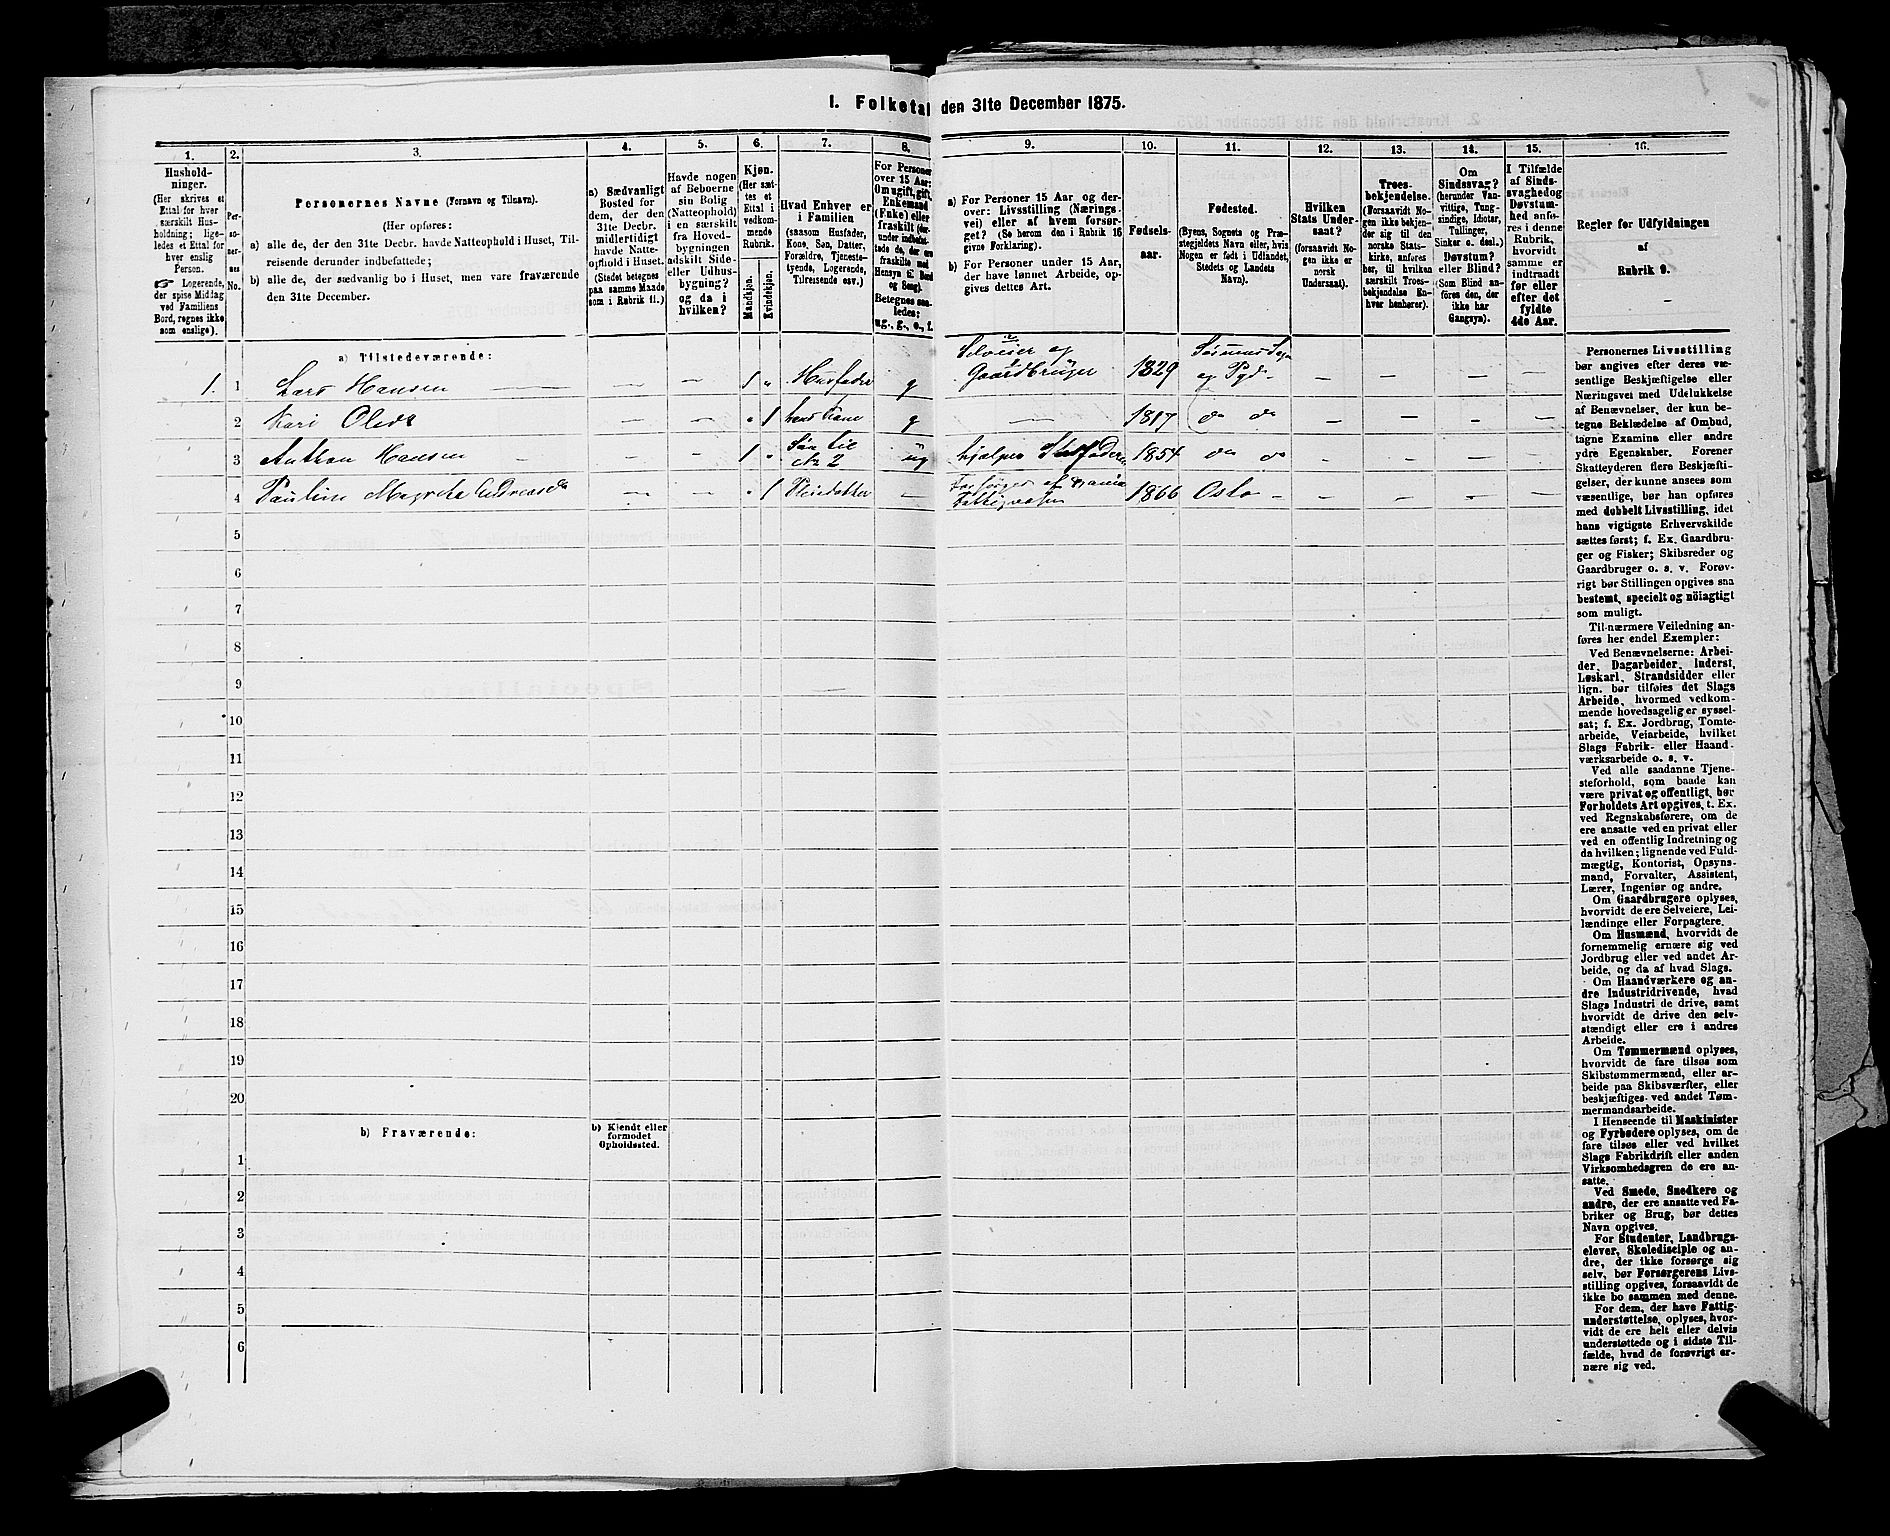 1. Folketal den 31te December 1875.
1.
Hushold-
ninger.
(Her skrives et
Ettal for hver
særskilt Hus-
holdning; lige-
ledes et Ettal for
hver enslig
Person.
☞ Logerende,
der spise Middag
ved Familiens
Bord, regnes ikke
som enslige).
2.
Per-
so-
ner-
nes
No.
3.
Personernes Navne (Fornavn og Tilnavn).
(Her opføres:
a) alle de, der den 31te Decbr. havde Natteophold i Huset, Til-
reisende derunder indbefattede;
b) alle de, der sædvanlig bo i Huset, men vare fraværende
den 31te December.
4.
a) Sædvanligt
Bosted for
dem, der den
31te Decbr.
midlertidigt
havde Natte-
ophold i Huset.
(Stedet betegnes
paa samme Maade
som i Rubrik 11.)
5.
Havde nogen
af Beboerne
sin Bolig
(Natteophold)
i en særskilt
fra Hoved-
bygningen
adskilt Side-
eller Udhus-
bygning?
og da i
hvilken?
6.
Kjøn.
(Her sæt-
tes et
Ettal i
vedkom-
mende
Rubrik.
Mandkjøn.
Kvindekjøn.
7.
Hvad Enhver er
i Familien
(saasom Husfader,
Kone, Søn, Datter,
Forældre, Tjeneste-
tyende, Logerende,
Tilreisende osv.)
8.
For Personer
over 15 Aar:
Om ugift, gift,
Enkemand
(Enke) eller
fraskilt (der-
under indbefat-
tede de, der ere
fraskilte med
Hensyn til Bord
og Seng).
Betegnes saa-
ledes:
ug., g., e., f.
9.
a) For Personer 15 Aar og der-
over: Livsstilling (Nærings-
vei) eller af hvem forsør-
get? (Se herom den i Rubrik 16
givne Forklaring).
b) For Personer under 15 Aar,
der have lønnet Arbeide, op-
gives dettes Art.
10.
Fødsels-
aar.
11.
Fødested.
(Byens, Sognets og Præ-
stegjeldets Navn eller, hvis
Nogen er født i Udlandet,
Stedets og Landets
Navn).
12.
Hvilken
Stats Under-
saat?
(forsaavidt No-
gen ikke er
norsk
Undersaat).
13.
Troes-
bekjendelse.
(Forsaavidt No-
gen ikke bekjen-
der sig til den
norske Stats-
kirke, anføres
her, til hvilken
særskilt Troes-
bekjendelse En-
hver henhører).
14.
Om
Sindssvag?
(herunder Van-
vittige, Tung-
sindige, Idioter,
Tullinger,
Sinker o. desl.)
Døvstum?
eller Blind?
(Som Blind an-
føres den, der
ikke har
Gangsyn).
15.
I Tilfælde
af Sinds-
svaghed og
Døvstum-
hed anfø-
res i denne
Rubrik,
hvorvidt
samme er
indtraadt
før eller
efter det
fyldte
4de Aar.
16.
Regler for Udfyldningen
af
Rubrik 9.
a) Tilstedeværende:
1. 1 Lars Hansen — — — 1 " Husfader g Selveier og Gaardbruger 1829 og Pgd — — — —
2 Kari Olsdr — — " 1 hans Kone g — 1817 do do — — — —
3 Anthon Hansen — — — 1 " Søn til No 2 ug hjælper Husfaderen 1854 do do — — — —
4 Pauline — — " 1 Pleiedatter — Forsørges af Fattigvæsen 1866 Oslo — — — — —
5
6
7
8
9
10
11
12
13
14
15
16
17
18
19
20
b) Fraværende:
b) Kjendt eller
formodet
Opholdssted.
1
2
3
4
5
6
Personernes Livsstilling
bør angives efter deres væ-
sentlige Beskjæftigelse eller
Næringsvei med Udelukkelse
af Benævnelser, der kun be-
tegne Beklædelse af Ombud,
tagne Examina eller andre
ydre Egenskaber. Forener
Skatteyderen flere Beskjæfti-
gelser, der kunne ansees som
væsentlige, bør han opføres
med dobbelt Livsstilling, idet
hans vigtigste Erhvervskilde
sættes først; f. Ex. Gaardbru-
ger og Fisker; Skibsreder og
Gaardbruger o. s. v. Forøv-
rigt bør Stillingen opgives saa
bestemt, specielt og nöiagtigt
som muligt.
Til nærmere Veiledning an-
føres her endel Exempler:
Ved Benævnelserne: Arbei-
der, Dagarbeider, Inderst,
Løskarl, Strandsidder eller
lign. bør tilføies det Slags
Arbeide, hvormed vedkom-
mende hovedsagelig er syssel-
sat; f. Ex. Jordbrug, Tomte-
arbeide, Veiarbeide, hvilket
Slags Fabrik- eller Haand-
værksarbeide o. s. v.
Ved alle saadanne Tjene-
steforhold, som baade kan
være privat og offentligt, bør
Forholdets Art opgives, t. Ex.
ved Regnskabsførere, om de
ere ansatte ved en privat eller
ved en offentlig Indretning og
da hvilken; lignende ved Fuld-
mægtig, Kontorist, Opsyns-
mand, Forvalter, Assistent,
Lærer, Ingeniør og andre.
Om Gaardbrugere oplyses,
hvorvidt de ere Selveiere, Lei-
lændinge eller Forpagtere.
Om Husmænd, hvorvidt de
fornemmelig ernære sig ved
Jordbrug eller ved andet Ar-
beide, og da af hvad Slags.
Om Haandværkere og an-
dre Industridrivende, hvad
Slags Industri de drive, samt
hvorvidt de drive den selv-
stændigt eller ere i andres
Arbeide.
Om Tømmermænd oplyses,
hvorvidt de fare tilsøs som
Skibstømmermænd, eller ar-
beide paa Skibsværfter, eller
beskjæftiges ved andet Tøm-
mermandsarbeide.
I Henseende til Maskinister
og Fyrbødere oplyses, om de
fare tilsøs eller ved hvilket
Slags Fabrikdrift eller anden
Virksomhedsgren de ere an-
satte.
Ved Smede, Snedkere og
andre, der ere ansatte ved Fa-
briker og Brug, bør dettes
Navn opgives.
For Studenter, Landbrugs-
elever, Skoledisciple og an-
dre, der ikke forsørge sig
selv, bør Forsørgerens Livs-
stilling opgives, forsaavidt de
ikke bo sammen med denne.
For dem, der have Fattig-
understøttelse, oplyses, hvor-
vidt de ere helt eller delvis
understøttede og i sidste Til-
fælde, hvad de forøvrigt er-
nære sig ved.